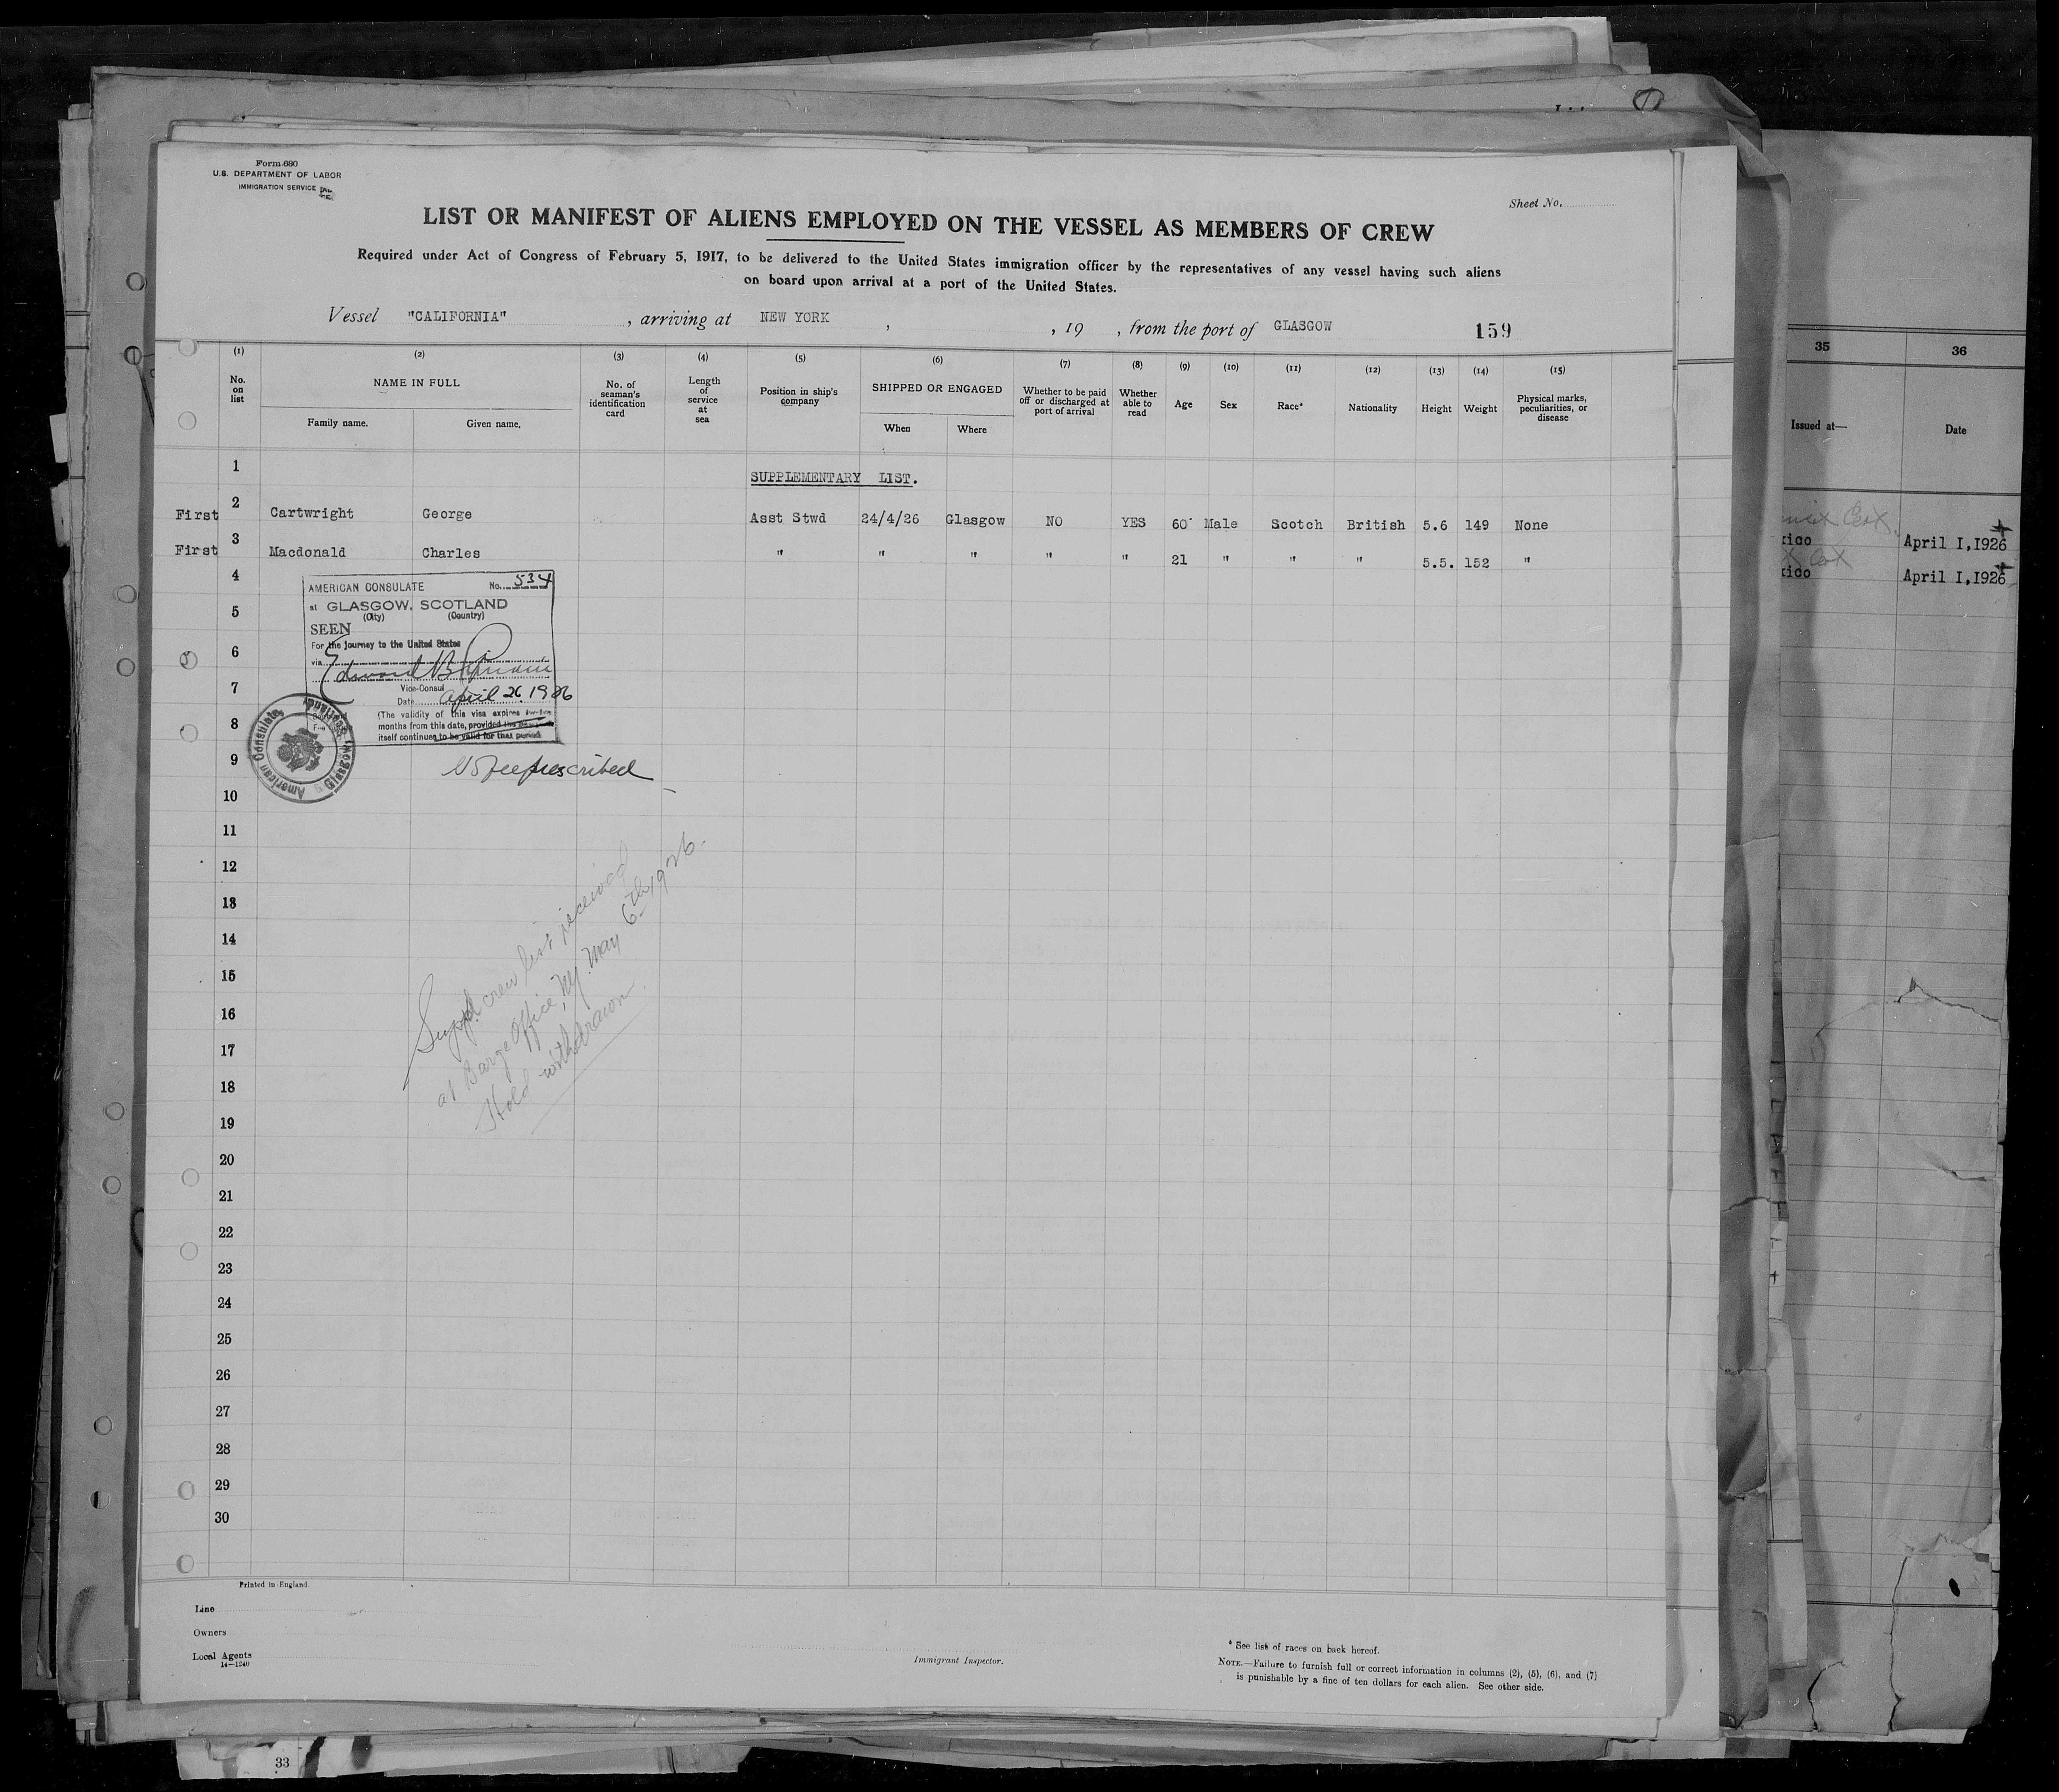 Form 680
U.S. DEPARTMENT OF LABOR
IMMIGRATION SERVICE
Sheet No.
LIST OR MANIFEST OF ALIENS EMPLOYED ON THE VESSEL AS MEMBERS OF CREW
Required under Act of Congress of February 5, 1917, to be delivered to the United States immigration officer by the representatives of any vessel having such aliens
on board upon arrival at a port of the United States.
Vessel "CALIFORNIA" , arriving at NEW YORK , , 19 , from the port of GLASGOW 159
(1) (2) (3) (4) (5) (6) (7) (8) (9) (10) (11) (12) (13) (14) (15)
No. on list
NAME IN FULL
Family name. Given name.
No. of seaman's identification card
Length of service at sea
Position in ship's company
SHIPPED OR ENGAGED
When Where
Whether to be paid off or discharged at port of arrival
Whether able to read
Age
Sex
Race*
Nationality
Height
Weight
Physical marks, peculiarities, or disease
1 SUPPLEMENTARY LIST.
First 2 Cartwright George Asst Stwd 24/4/26 Glasgow NO YES 60 Male Scotch British 5.6 149 None
First 3 Macdonald Charles " " " " " 21 " " " 5.5. 152 "
4
5
6
7
8
9
10
11
12
13
14
15
16
17
18
19
20
21
22
23
24
25
26
27
28
29
30
AMERICAN CONSULATE No. 534
at GLASGOW, SCOTLAND
(City) (Country)
SEEN
For the journey to the United States
via
Edward B
Vice-Consul
Date April 26 1926
(The validity of this visa expires
months from this date, provided the
itself continues to be valid for that period
American Consulate Glasgow, Scotland
No fee prescribed
Suppl. crew list received
at Barge Office, NY May 6th 1926.
Hold withdrawn.
Printed in England
Line
Owners
Local Agents
14—1240
Immigrant Inspector.
* See list of races on back hereof.
NOTE.—Failure to furnish full or correct information in columns (2), (5), (6), and (7)
is punishable by a fine of ten dollars for each alien. See other side.
35 36
Issued at— Date
Cert.
xico April 1, 1926
xico April 1, 1926
33